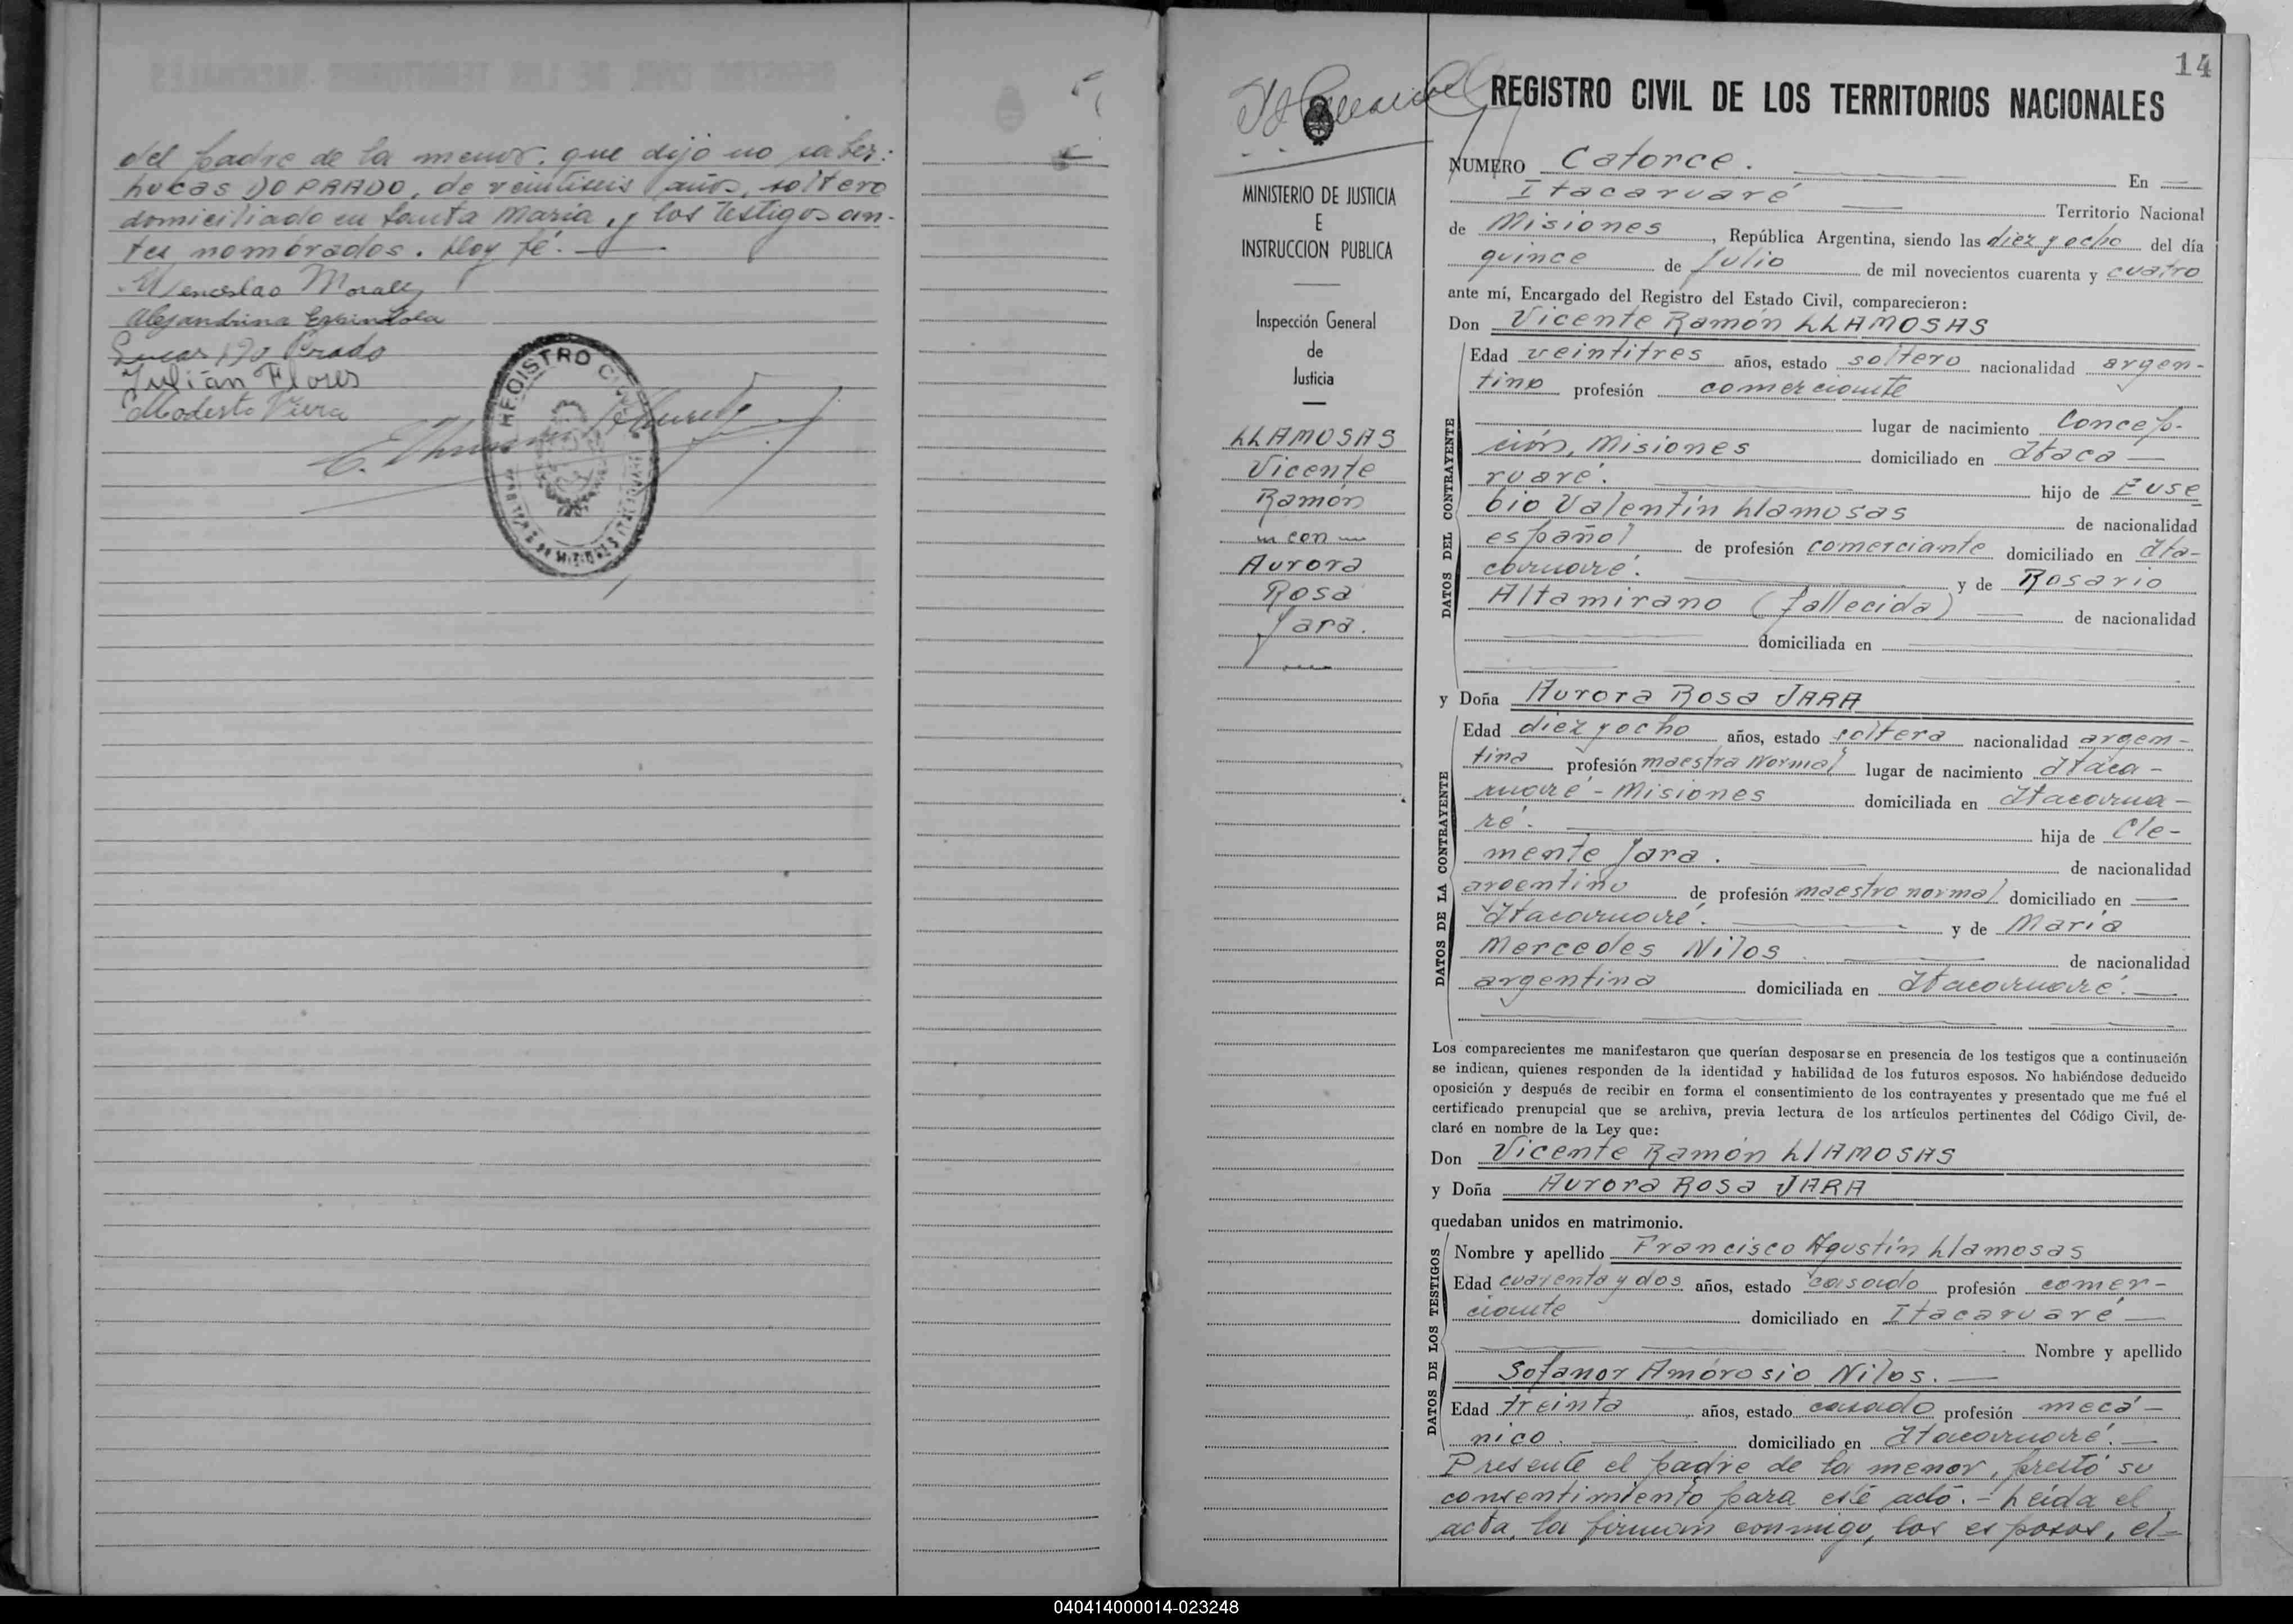 del padre de la menor. que dijo no saber:
Lucas DO PRADO, de veintiseis años, soltero
domiciliado en Santa Maria, y los testigos an-
tes nombrados. Doy fé.
Wenceslao Morales
Alejandrina Espindola
Lucas Do Prado
Julián Flores
Modesto Viera
REGISTRO
14
REGISTRO CIVIL DE LOS TERRITORIOS NACIONALES
MINISTERIO DE JUSTICIA
E
INSTRUCCION PUBLICA
Inspección General
de
Justicia
LLAMOSAS
Vicente
Ramón
con
Aurora
Rosa
Jara.
NUMERO Catorce. En
Itacaruaré Territorio Nacional
de Misiones, República Argentina, siendo las diez y ocho del día
quince de Julio de mil novecientos cuarenta y cuatro
ante mí, Encargado del Registro del Estado Civil, comparecieron:
Don Vicente Ramón LLAMOSAS
DATOS DEL CONTRAYENTE
Edad veintitres años, estado soltero nacionalidad argen-
tino profesión comerciante
lugar de nacimiento Concep-
ción, Misiones domiciliado en Itaca
ruaré. hijo de Euse
bio Valentín Llamosas de nacionalidad
español de profesión comerciante domiciliado en Ita-
caruaré. y de Rosario
Altamirano (fallecida) de nacionalidad
domiciliada en
y Doña Aurora Rosa JARA
DATOS DE LA CONTRAYENTE
Edad diez y ocho años, estado soltera nacionalidad argen-
tina profesión maestra Normal lugar de nacimiento Itaca-
ruaré - Misiones domiciliada en Itacarua-
ré. hija de Cle-
mente Jara. de nacionalidad
argentino de profesión maestro normal domiciliado en
Itacaruaré. y de María
Mercedes Nilos de nacionalidad
argentina domiciliada en Itacaruaré.
Los comparecientes me manifestaron que querían desposarse en presencia de los testigos que a continuación
se indican, quienes responden de la identidad y habilidad de los futuros esposos. No habiéndose deducido
oposición y después de recibir en forma el consentimiento de los contrayentes y presentado que me fué el
certificado prenupcial que se archiva, previa lectura de los artículos pertinentes del Código Civil, de-
claré en nombre de la Ley que:
Don Vicente Ramón LLAMOSAS
y Doña Aurora Rosa JARA
quedaban unidos en matrimonio.
DATOS DE LOS TESTIGOS
Nombre y apellido Francisco Agustín Llamosas
Edad cuarenta y dos años, estado casado profesión comer-
ciante domiciliado en Itacaruaré
Nombre y apellido
Sofanor Ambrosio Nilos.
Edad treinta años, estado casado profesión mecá-
nico. domiciliado en Itacaruaré.
Presente el padre de la menor, prestó su
consentimiento para este acto. - Leída el
acta, la firman conmigo, los esposos, el
040414000014-023248